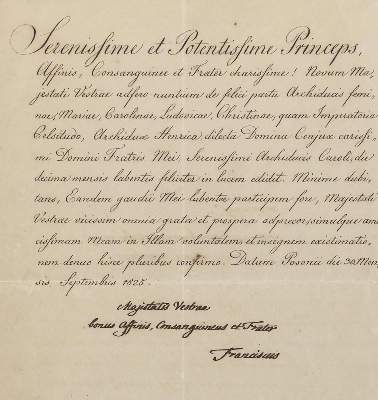 Serenissime et Potentissime Princeps,
Affinis, Consanguinee et Frater charissime! Novum Ma,
jestati Vestrae adfero nuntium de felici partu Archiducis femi,
nae, Mariae, Carolinae, Ludovicae, Christinae, quam Imperatoria
Celsitudo, Archidux Henrica dilecta Domina Conjux carissi,
mi Domini Fratris Mei, Serenissimi Archiducis Caroli, die
decima mensis labentis feliciter in lucem edidit. Minime dubi,
tans, Eandem gaudii Mei lubenter participem fore, Majestati
Vestrae vicissim omnia grata et prospera adprecor, simulque ami
cissimam Meam in Illam voluntatem, et insignem existimatio,
nem denuo hisce pluribus confirmo. Datum Posonii die Men,
sis, Septembris 1825.
Majestatis Vestrae
bonus Affinis, Consanguineus et Frater
Franciscus